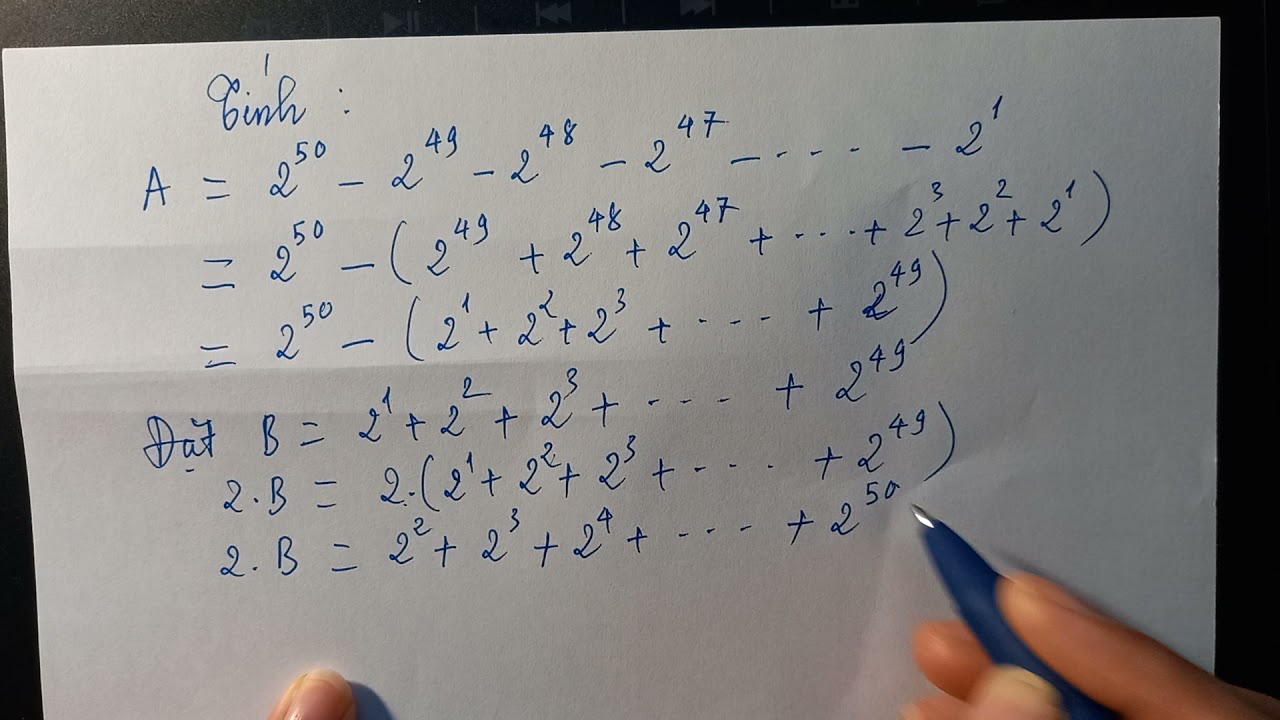 Tính :
A = 2^50 - 2^49 - 2^48 - 2^47 - ---- - 2^1
= 2^50 - (2^49 + 2^48 + 2^47 + ---- + 2^3 + 2^2 + 2^1)
= 2^50 - (2^1 + 2^2 + 2^3 + ---- + 2^49)
Đặt B = 2^1 + 2^2 + 2^3 + ---- + 2^49
2.B = 2.(2^1 + 2^2 + 2^3 + ---- + 2^49)
2.B = 2^2 + 2^3 + 2^4 + ---- + 2^50